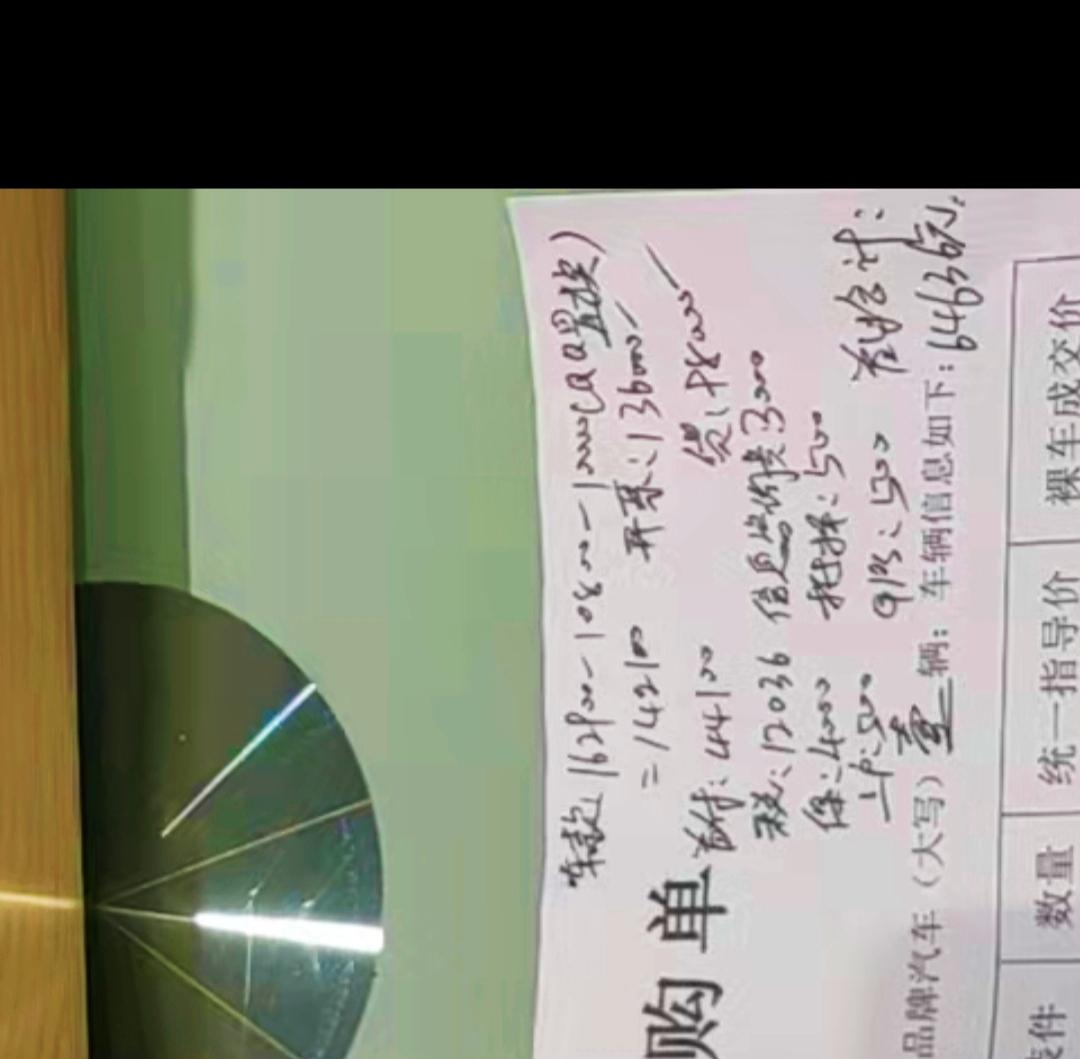 车款：162900-10800-10000(QQ置换)
=142100 开票：136000
首付：44100 贷：98000
税：12036 信息咨询费：3000
保：4000 托抵：500
上户：500 GPS：500 首付合计：
64636元
购单
品牌汽车（大写）壹辆；车辆信息如下：
件 数量 统一指导价 裸车成交价